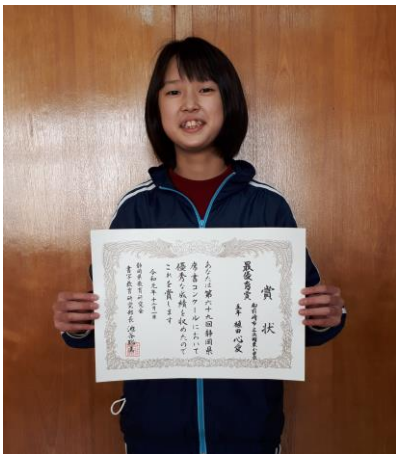 賞状
最優秀賞
五年 植田 心愛
あなたは第六十九回静岡県
席書コンクールにおいて
優秀な成績を収めたので
これを賞します
令和元年十二月一日
静岡県教育研究会
書写教育研究部長